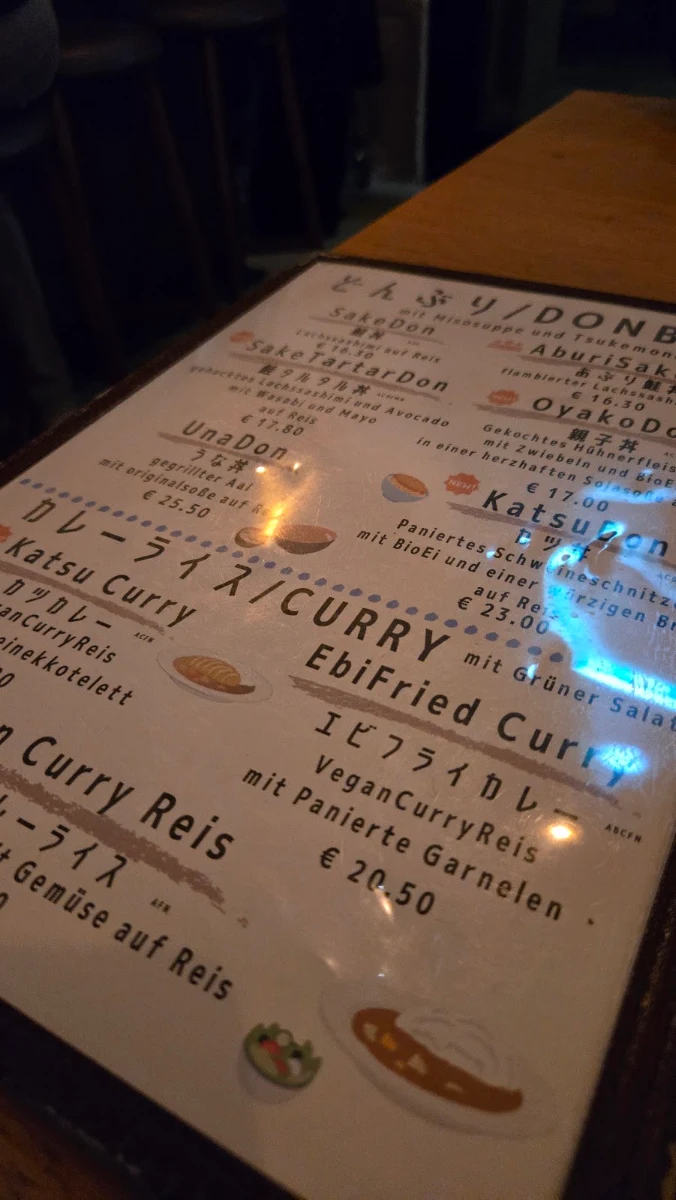 どんぶり/DONB
mit Misosuppe und Tsukemono
SakeDon
鮭丼
Lachssashimi auf Reis
€ 16.30
SakeTartarDon
鮭タルタル丼
gehacktes Lachssashimi und Avocado
mit Wasabi und Mayo
auf Reis
€ 17.80
UnaDon
うな丼
gegrillter Aal
mit originalsoße auf Re
€ 25.50
AburiSak
あぶり鮭
flambierter Lachssash
€ 16.30
OyakoDo
親子丼
Gekochtes Hühnerfleis
mit Zwiebeln und BioE
in einer herzhaften Sojasoße
€ 17.00
NEW!
KatsuDon
カツ丼
Paniertes Schweineschnitze
mit BioEi und einer würzigen Br
auf Reis
€ 23.00
カレーライス/CURRY
mit Grüner Salat
Katsu Curry
カツカレー
ACFN
anCurryReis
einekkotelett
EbiFried Curry
エビフライカレー
ABCFN
VeganCurryReis
mit Panierte Garnelen
€ 20.50
n Curry Reis
レーライス
AFN
t Gemüse auf Reis